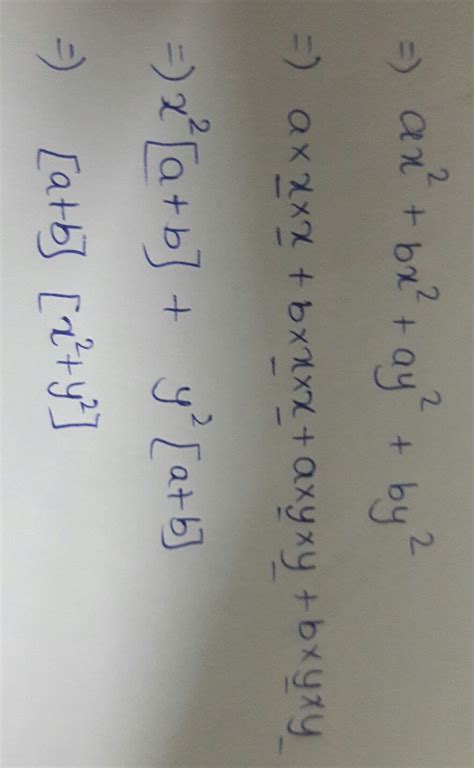 =) ax² + bx² + ay² + by²
=) a×x×x + b×x×x + a×y×y + b×y×y
=) x² [a+b] + y² [a+b]
=) [a+b] [x²+y²]